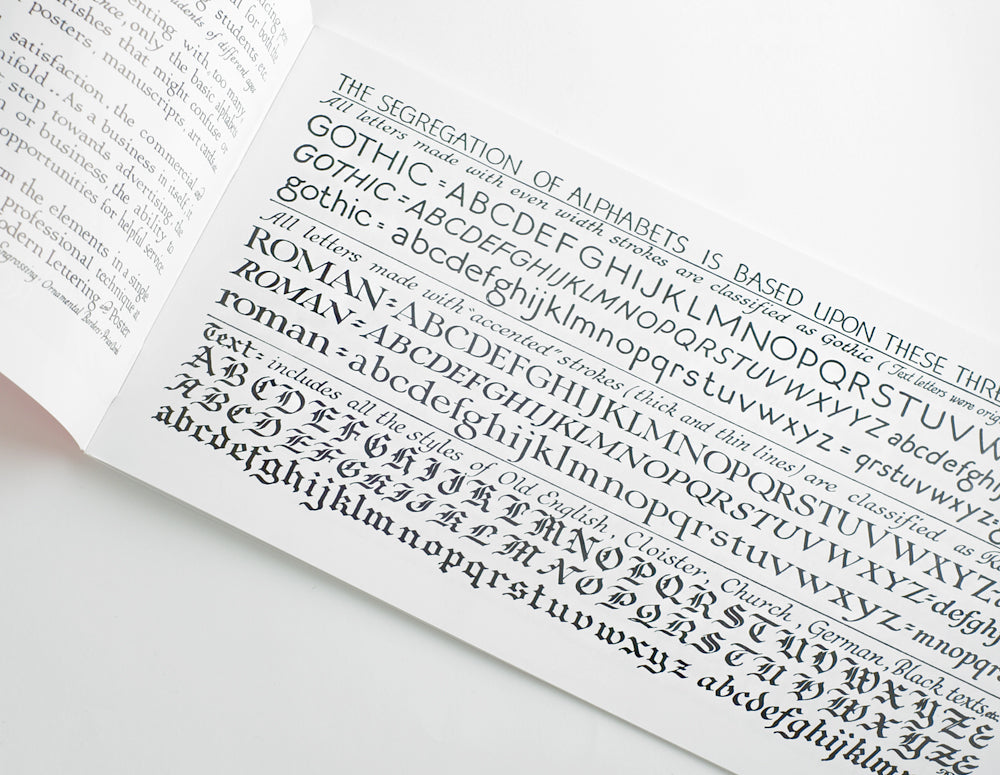 enting with, too many,
ence, only the basic alphabets
rishes that might confuse or
posters, manuscripts are
students of different ages
students, etc.
for both the
satisfaction, the commercial and
nifold.. As a business in itself, it
step towards advertising.
or business, the ability to
opportunities for helpful service
m the elements in a single
professional technique
odern Lettering and Poster
Engrossing, Ornamental Borders,
THE SEGREGATION OF ALPHABETS IS BASED UPON THESE THRE
All letters made with even width strokes are classified as Gothic (Text letters were orig
GOTHIC = ABCDEFGHIJKLMNOPQRSTUVW
GOTHIC = ABCDEFGHIJKLMNOPQRSTUVWXYYZ abcdefghij
gothic = abcdefghijklmnopqrstuvwxyz = qrstuvwxyz=
All letters made with "accented" strokes (thick and thin lines) are classified as
ROMAN = ABCDEFGHIJKLMNOPQRSTUVWXYZ
ROMAN = ABCDEFGHIJKLMNOPQRSTUVWXYZ = defghi
roman = abcdefghijklmnopqrstuvwxyz = mnopqr
Text = includes all the styles of Old English, Cloister, Church, German, Black texts etc.
ABCDEFGHIJKLMNOPQRSTUVWXYZ&
ABCDEFGHIJKLMNOPQRSTUVWXYZ&
abcdefghijklmnopqrstuvwxyz abcdefghijklmn